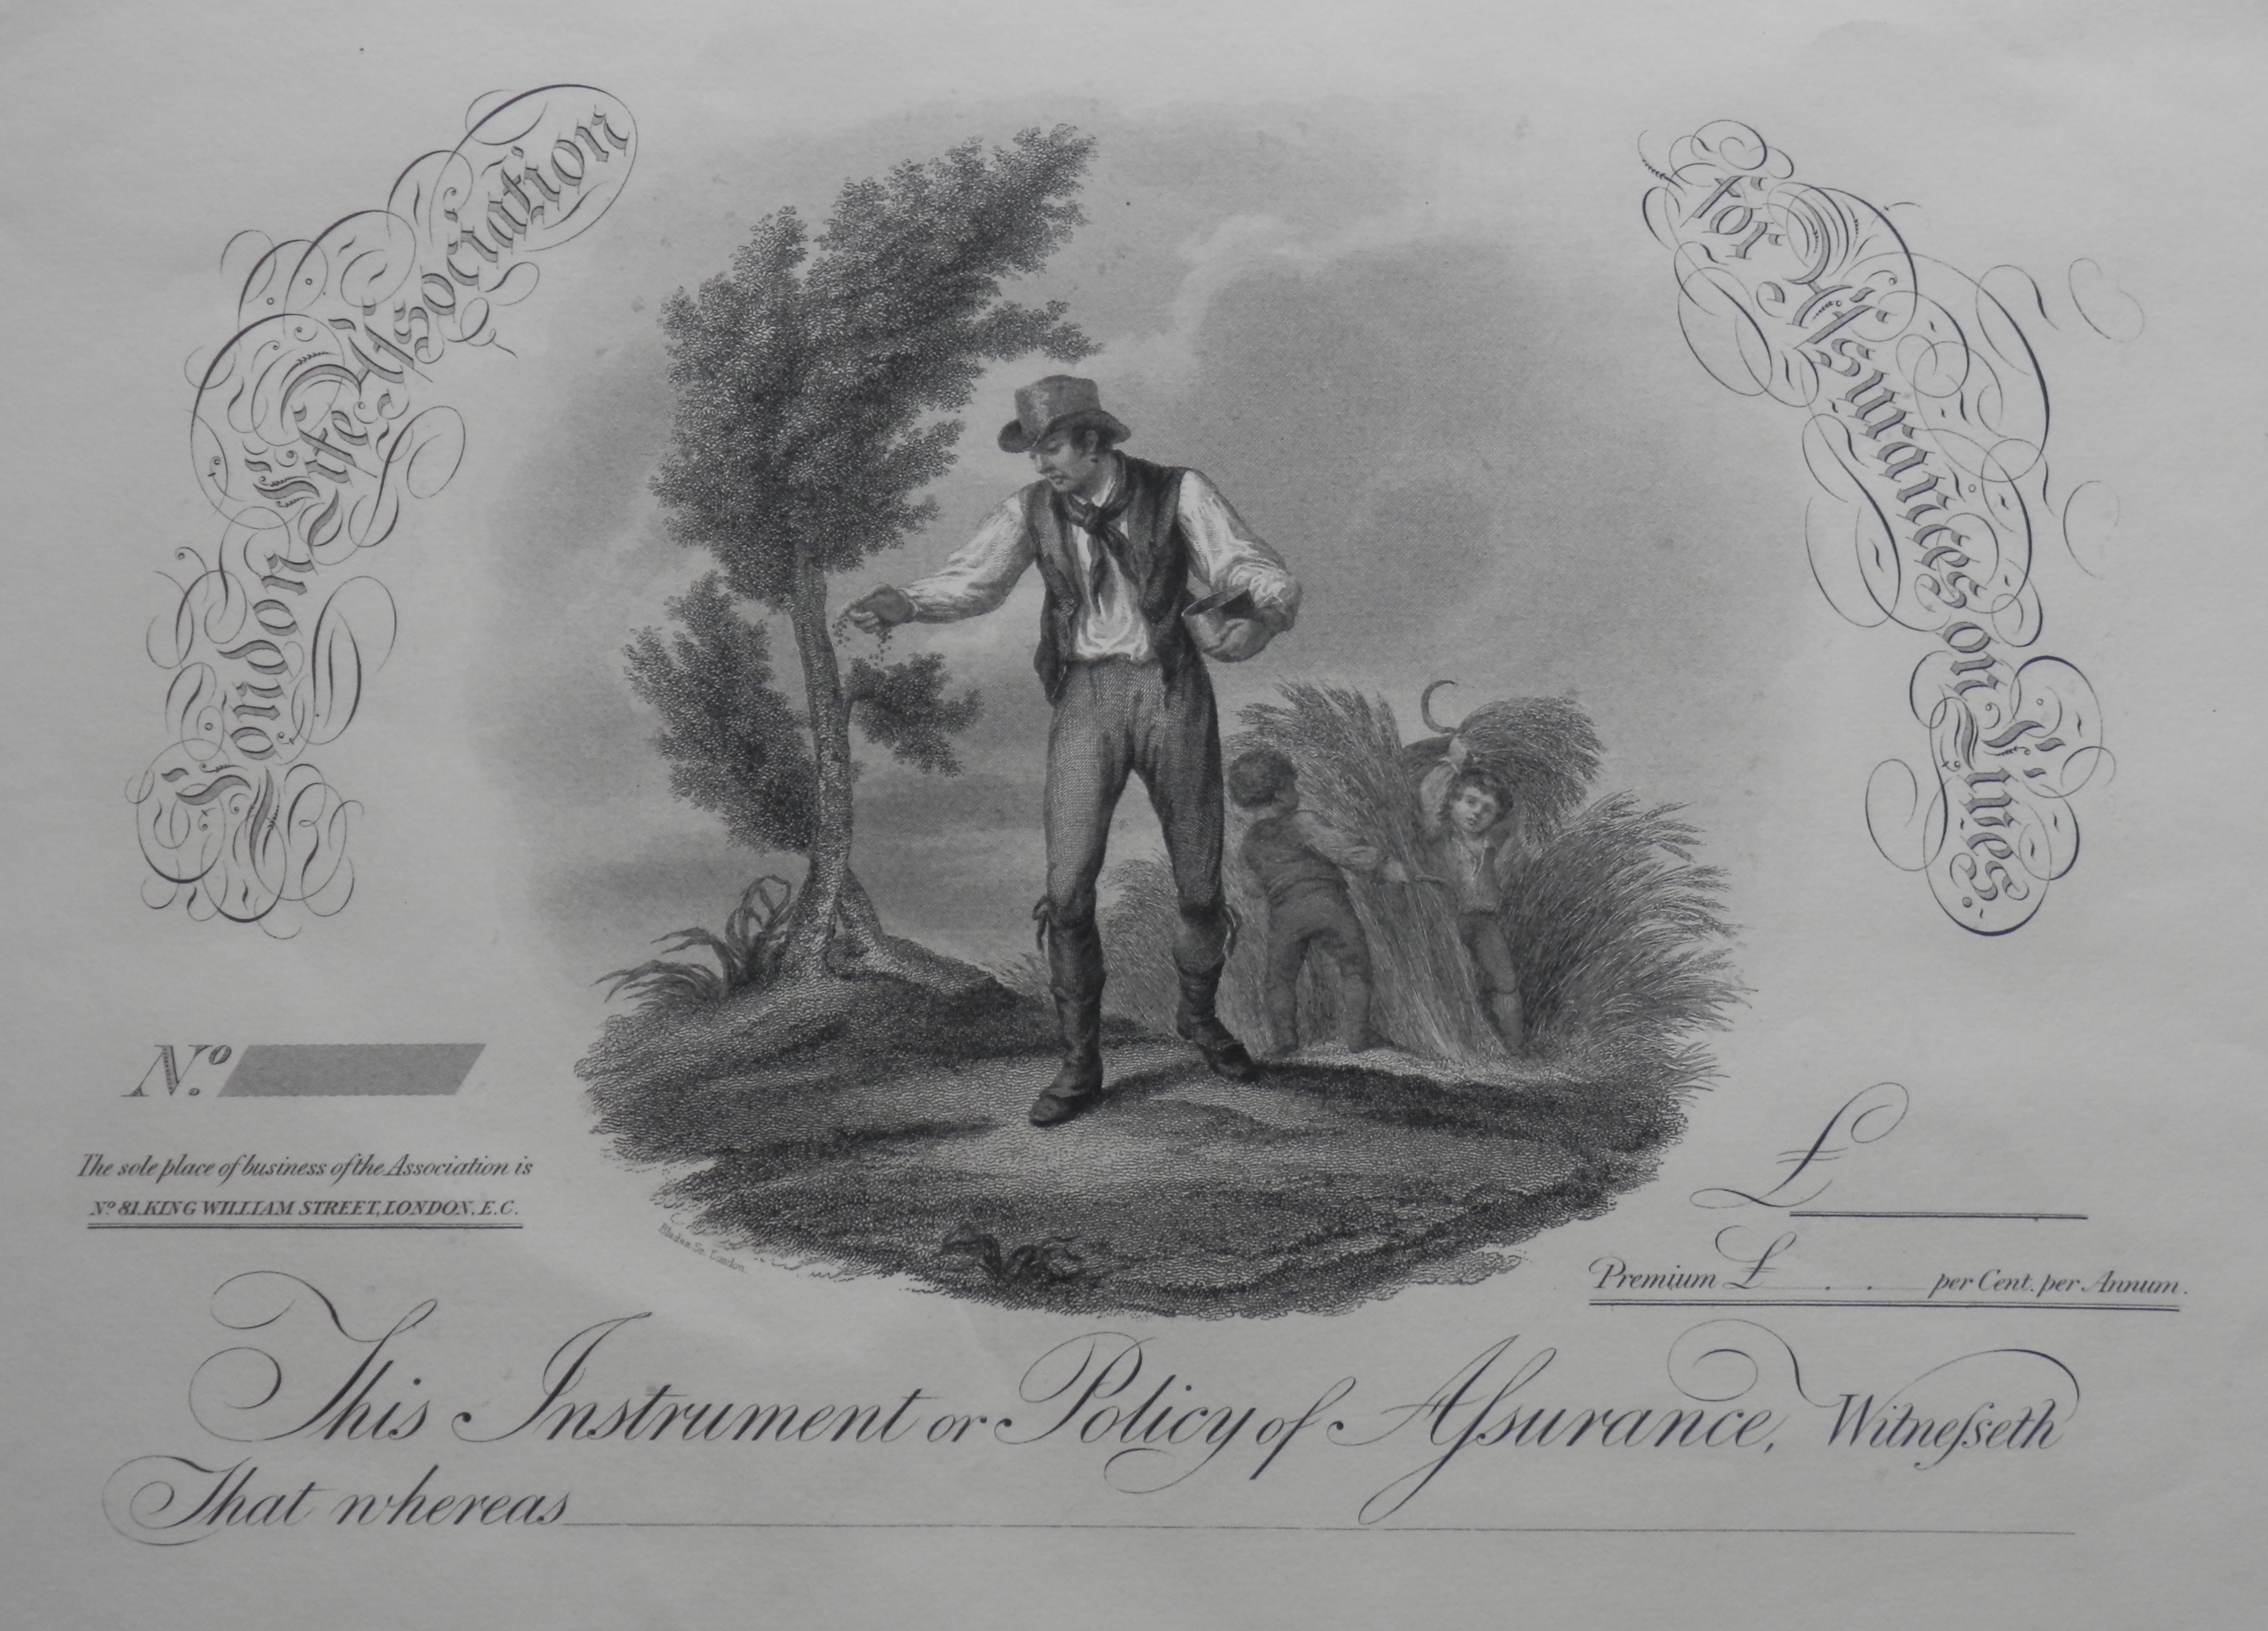 London Life Association
for Aſsurances on Lives.
Nº.
The sole place of business of the Association is
Nº 81. KING WILLIAM STREET, LONDON, E.C.
Sc. London.
£
Premium £ . . per Cent. per Annum.
This Instrument or Policy of Aſsurance, Witneſseth
That whereas